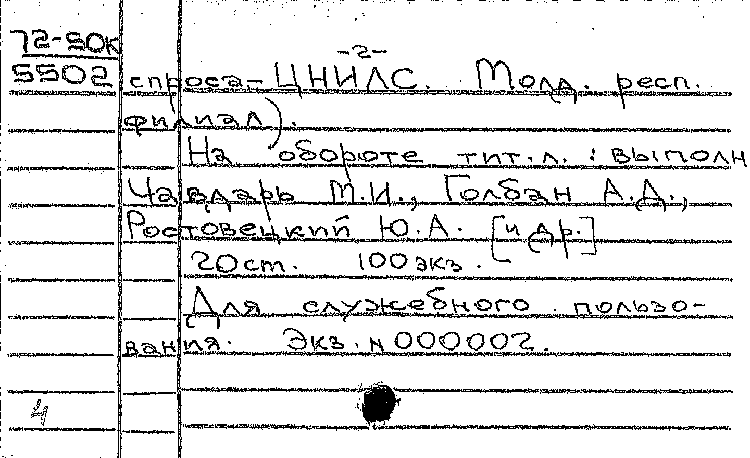 72-50к
5502
-2-
спроса- ЦНИЛС. Молд. респ.
филиал).
На обороте тит.л. : выполн
Чавдарь М.И., Голбан А.Д.,
Ростовецкий Ю.А. [и др.]
20ст. 100экз.
Для служебного пользо-
вания. Экз.N000002.
4